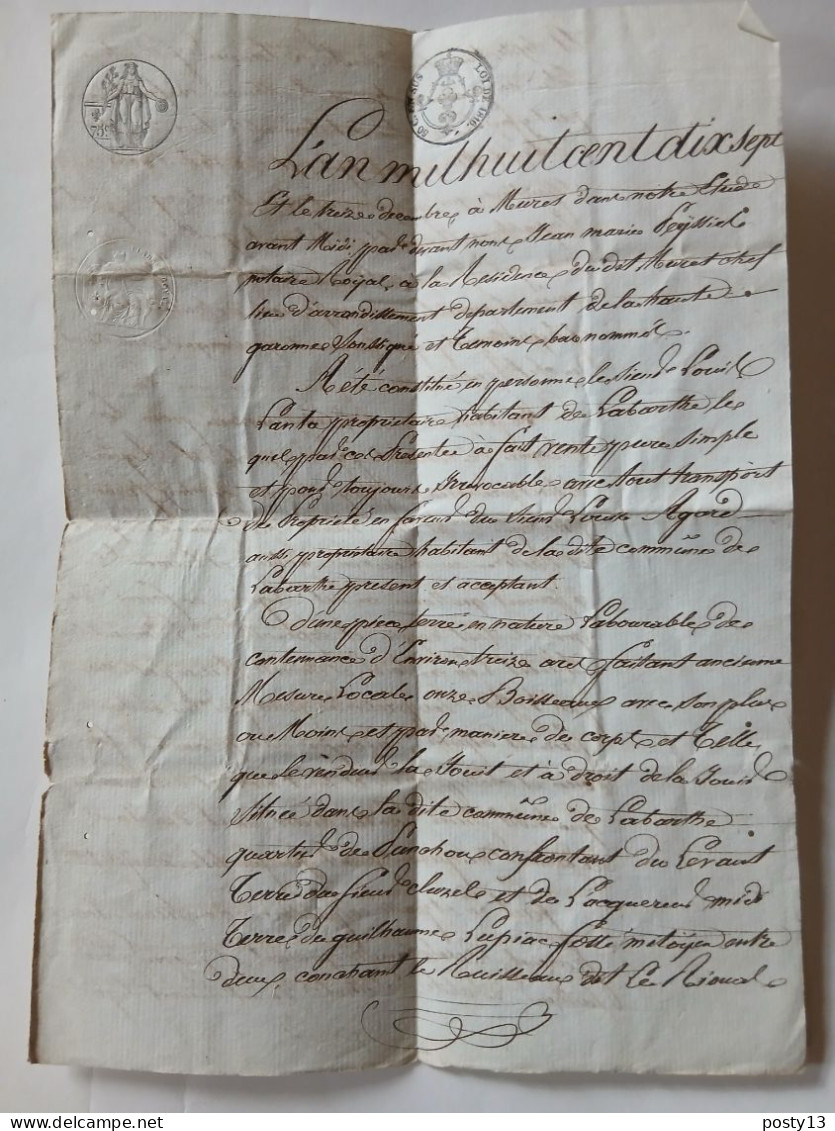 75c
50 C. EN SUS LOI DE 1816.
L'an mil huit cent dix sept
Et le treize decembre, à Muret dans notre Etude
avant Midi pardevant nous Jean marie
notaire Royal, a la Residence dudit Muret chef
lieu d'arrondissement departement de la haute
garonne soussigné et Temoins bas nommés.
A été constitué en personne le sieur Louis
Lanta propriétaire habitant de Labarthe, le
quel par ces Presentes à fait vente pure simple
et pour toujours Irrevocable avec tout transport
de Propriété en faveur du sieur Agard
aussi propriétaire habitant de la dite commune de
Labarthe present et acceptant.
D'une piece terre en nature Labourable de
contenance d'Environ treize ares faisant ancienne
Mesure Locale onze Boisseaux avec son plus
ou Moins et par maniere de corps et Telle
que le vendeur la Jouit et à droit de la Jouir
située dans la dite commune de Labarthe
quartier de confrontant du Levant
Terre du sieur cluzel et de Lacquereur midi
Terre de guilhaume Lupiac fossé mitoyen entre
deux, couchant le Ruisseau dit Le
posty13